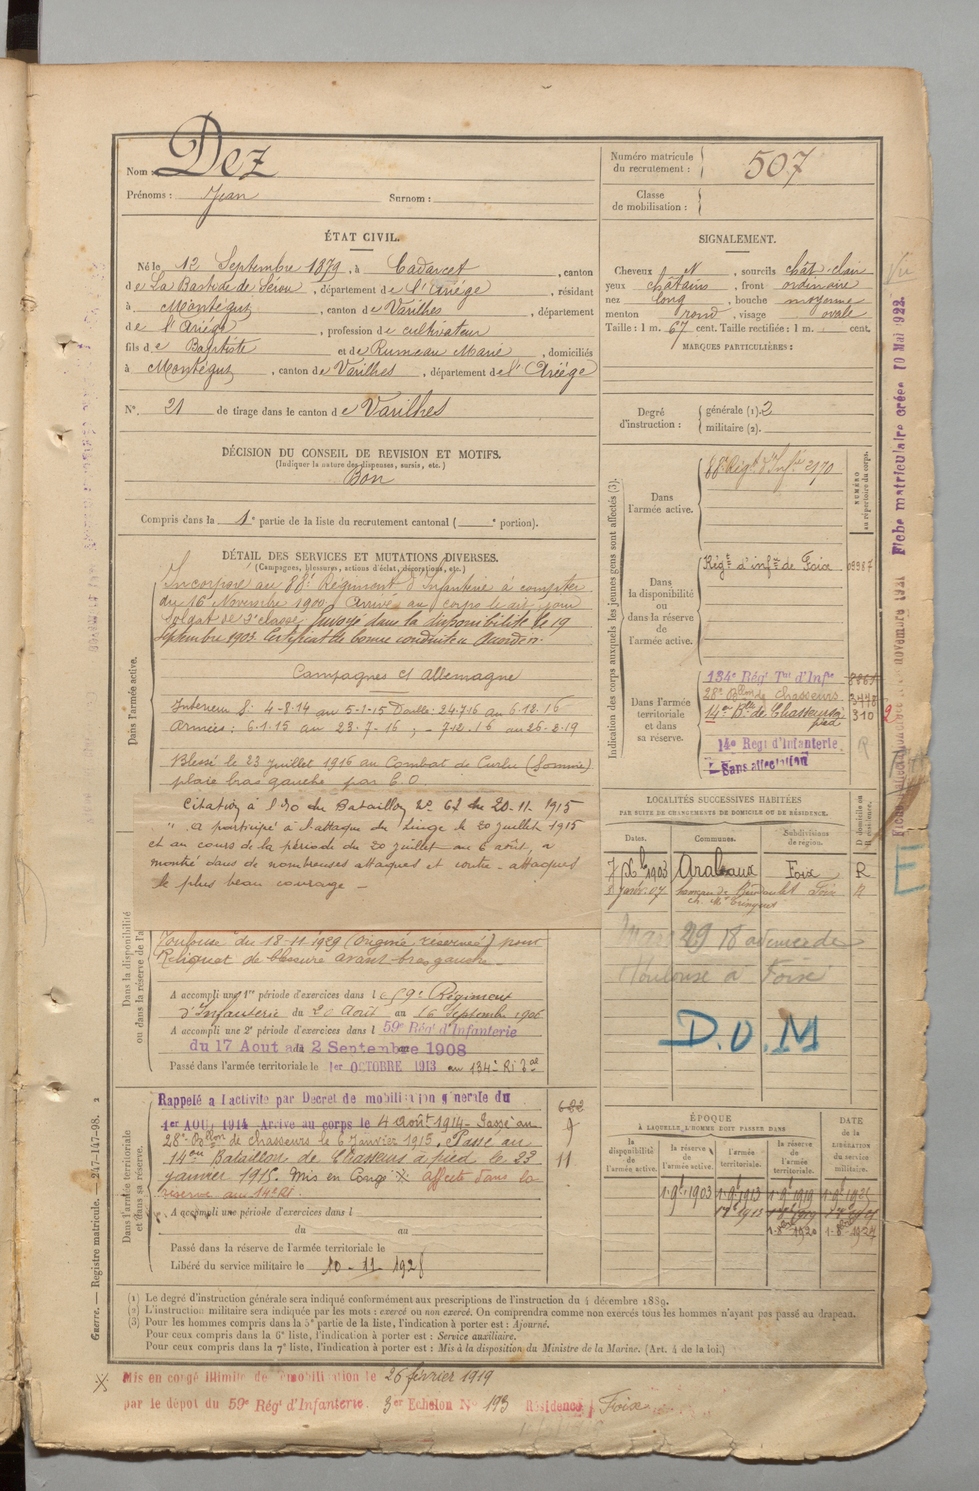 Nom : Dez
Prénoms : Jean Surnom :
Numéro matricule du recrutement : 507
Classe de mobilisation :
ÉTAT CIVIL.
Né le 12 Septembre 1879, à Cadarcet, canton
de La Bastide de Sérou, département de l'Ariége, résidant
à Montégut, canton de Varilhes, département
de l'Ariége, profession de cultivateur
fils de Baptiste et de Rumeau Marie, domiciliés
à Montégut, canton de Varilhes, département de l'Ariége
N°. 21 de tirage dans le canton de Varilhes
SIGNALEMENT.
Cheveux N, sourcils chât. clair
yeux châtains, front ordinaire
nez long, bouche moyenne
menton rond, visage ovale
Taille : 1 m. 67 cent. Taille rectifiée : 1 m. cent.
MARQUES PARTICULIÈRES :
Degré d'instruction : générale (1). 2
militaire (2).
DÉCISION DU CONSEIL DE REVISION ET MOTIFS.
(Indiquer la nature des dispenses, sursis, etc.)
Bon
Compris dans la 1e partie de la liste du recrutement cantonal ( e portion).
DÉTAIL DES SERVICES ET MUTATIONS DIVERSES.
(Campagnes, blessures, actions d'éclat, décorations, etc.)
Dans l'armée active.
Incorporé au 88e Régiment d'Infanterie à compter
du 16 Novembre 1900, Arrivé au corps le dit jour
soldat de 2e classe. Envoyé dans la disponibilité le 19
Septembre 1903. Certificat de bonne conduite Accordé.
Campagnes c/ Allemagne
Intérieur S: 4-8-14 au 5-1-15 24.7.16 au 6.12.16
Armées : 6-1-15 au 23.7.16, - 7.12.16 au 26-2-19
Blessé le 23 juillet 1916 au Combat de Curlu (Somme)
plaie bras gauche par E.O
Citation à l'O du Bataillon N° 62 du 20-11 1915
" a participé à l'attaque du Linge le 20 juillet 1915
et au cours de la période du 20 juillet au 6 août, a
montré dans de nombreuses attaques et contre-attaques
le plus beau courage -
Dans la disponibilité ou dans la réserve de l'a
Toulouse du 18-11-1929 (Origine réservée) pour
Reliquat de blessure avant-bras gauche.
A accompli une 1re période d'exercices dans le 59e Régiment
d'Infanterie du 20 Août au 16 Septembre 1906
A accompli une 2e période d'exercices dans l 59e Régt d'Infanterie
du 17 Aout au 2 Septembre 1908
Passé dans l'armée territoriale le 1er OCTOBRE 1913 au 134e RI Tal
Dans l'armée territoriale et dans sa réserve.
Rappelé à l'activité par Décret de mobilisation générale du
1er AOUT 1914 Arrivé au corps le 4 août 1914. Passé au
28e Bton de chasseurs le 6 janvier 1915. Passé au
14me Bataillon de Chasseurs à pied le 23
janvier 1915. Mis en Congé X Affecté dans la
réserve au 14e RI.
682
9
11
A accompli une période d'exercices dans l
du au
Passé dans la réserve de l'armée territoriale le
Libéré du service militaire le 10-11-1928
Indication des corps auxquels les jeunes gens sont affectés (3).
NUMÉRO au répertoire du corps.
Dans l'armée active. 88e Régt d'Infie 2170
Dans la disponibilité ou dans la réserve de l'armée active. Régt d'infie de Foix 09387
Dans l'armée territoriale et dans sa réserve.
134e Régt Tal d'Infie
28e Bton de Chasseurs
14e Bon de Chasseurs à pied 310
14e Régt d'Infanterie
Sans affectation
LOCALITÉS SUCCESSIVES HABITÉES
PAR SUITE DE CHANGEMENTS DE DOMICILE OU DE RÉSIDENCE.
Dates. Communes. Subdivisions de région. D domicile ou R résidence.
7 Xbre 1903 Arabaux Foix R
8 Janv. 07 Foix R
Mars 29 18 avenue de
Toulouse à Foix
D.O.M
ÉPOQUE
À LAQUELLE L'HOMME DOIT PASSER DANS
la disponibilité de l'armée active. la réserve de l'armée active. l'armée territoriale. la réserve de l'armée territoriale. DATE de la LIBÉRATION du service militaire.
1-9bre 1903 1-9bre 1913 1-9bre 1919 1-9bre 1925
Fiche matriculaire créée 10 Mai 1922.
Vu
E
Guerre. — Registre matricule. — 247-147-98. 2
(1) Le degré d'instruction générale sera indiqué conformément aux prescriptions de l'instruction du 4 décembre 1889.
(2) L'instruction militaire sera indiquée par les mots : exercé ou non exercé. On comprendra comme non exercés tous les hommes n'ayant pas passé au drapeau.
(3) Pour les hommes compris dans la 5e partie de la liste, l'indication à porter est : Ajourné.
Pour ceux compris dans la 6e liste, l'indication à porter est : Service auxiliaire.
Pour ceux compris dans la 7e liste, l'indication à porter est : Mis à la disposition du Ministre de la Marine. (Art. 4 de la loi.)
X Mis en congé illimité de démobilisation le 26 février 1919
par le dépot du 59e Régt d'Infanterie. 3er Echelon N° 193 Résidence Foix